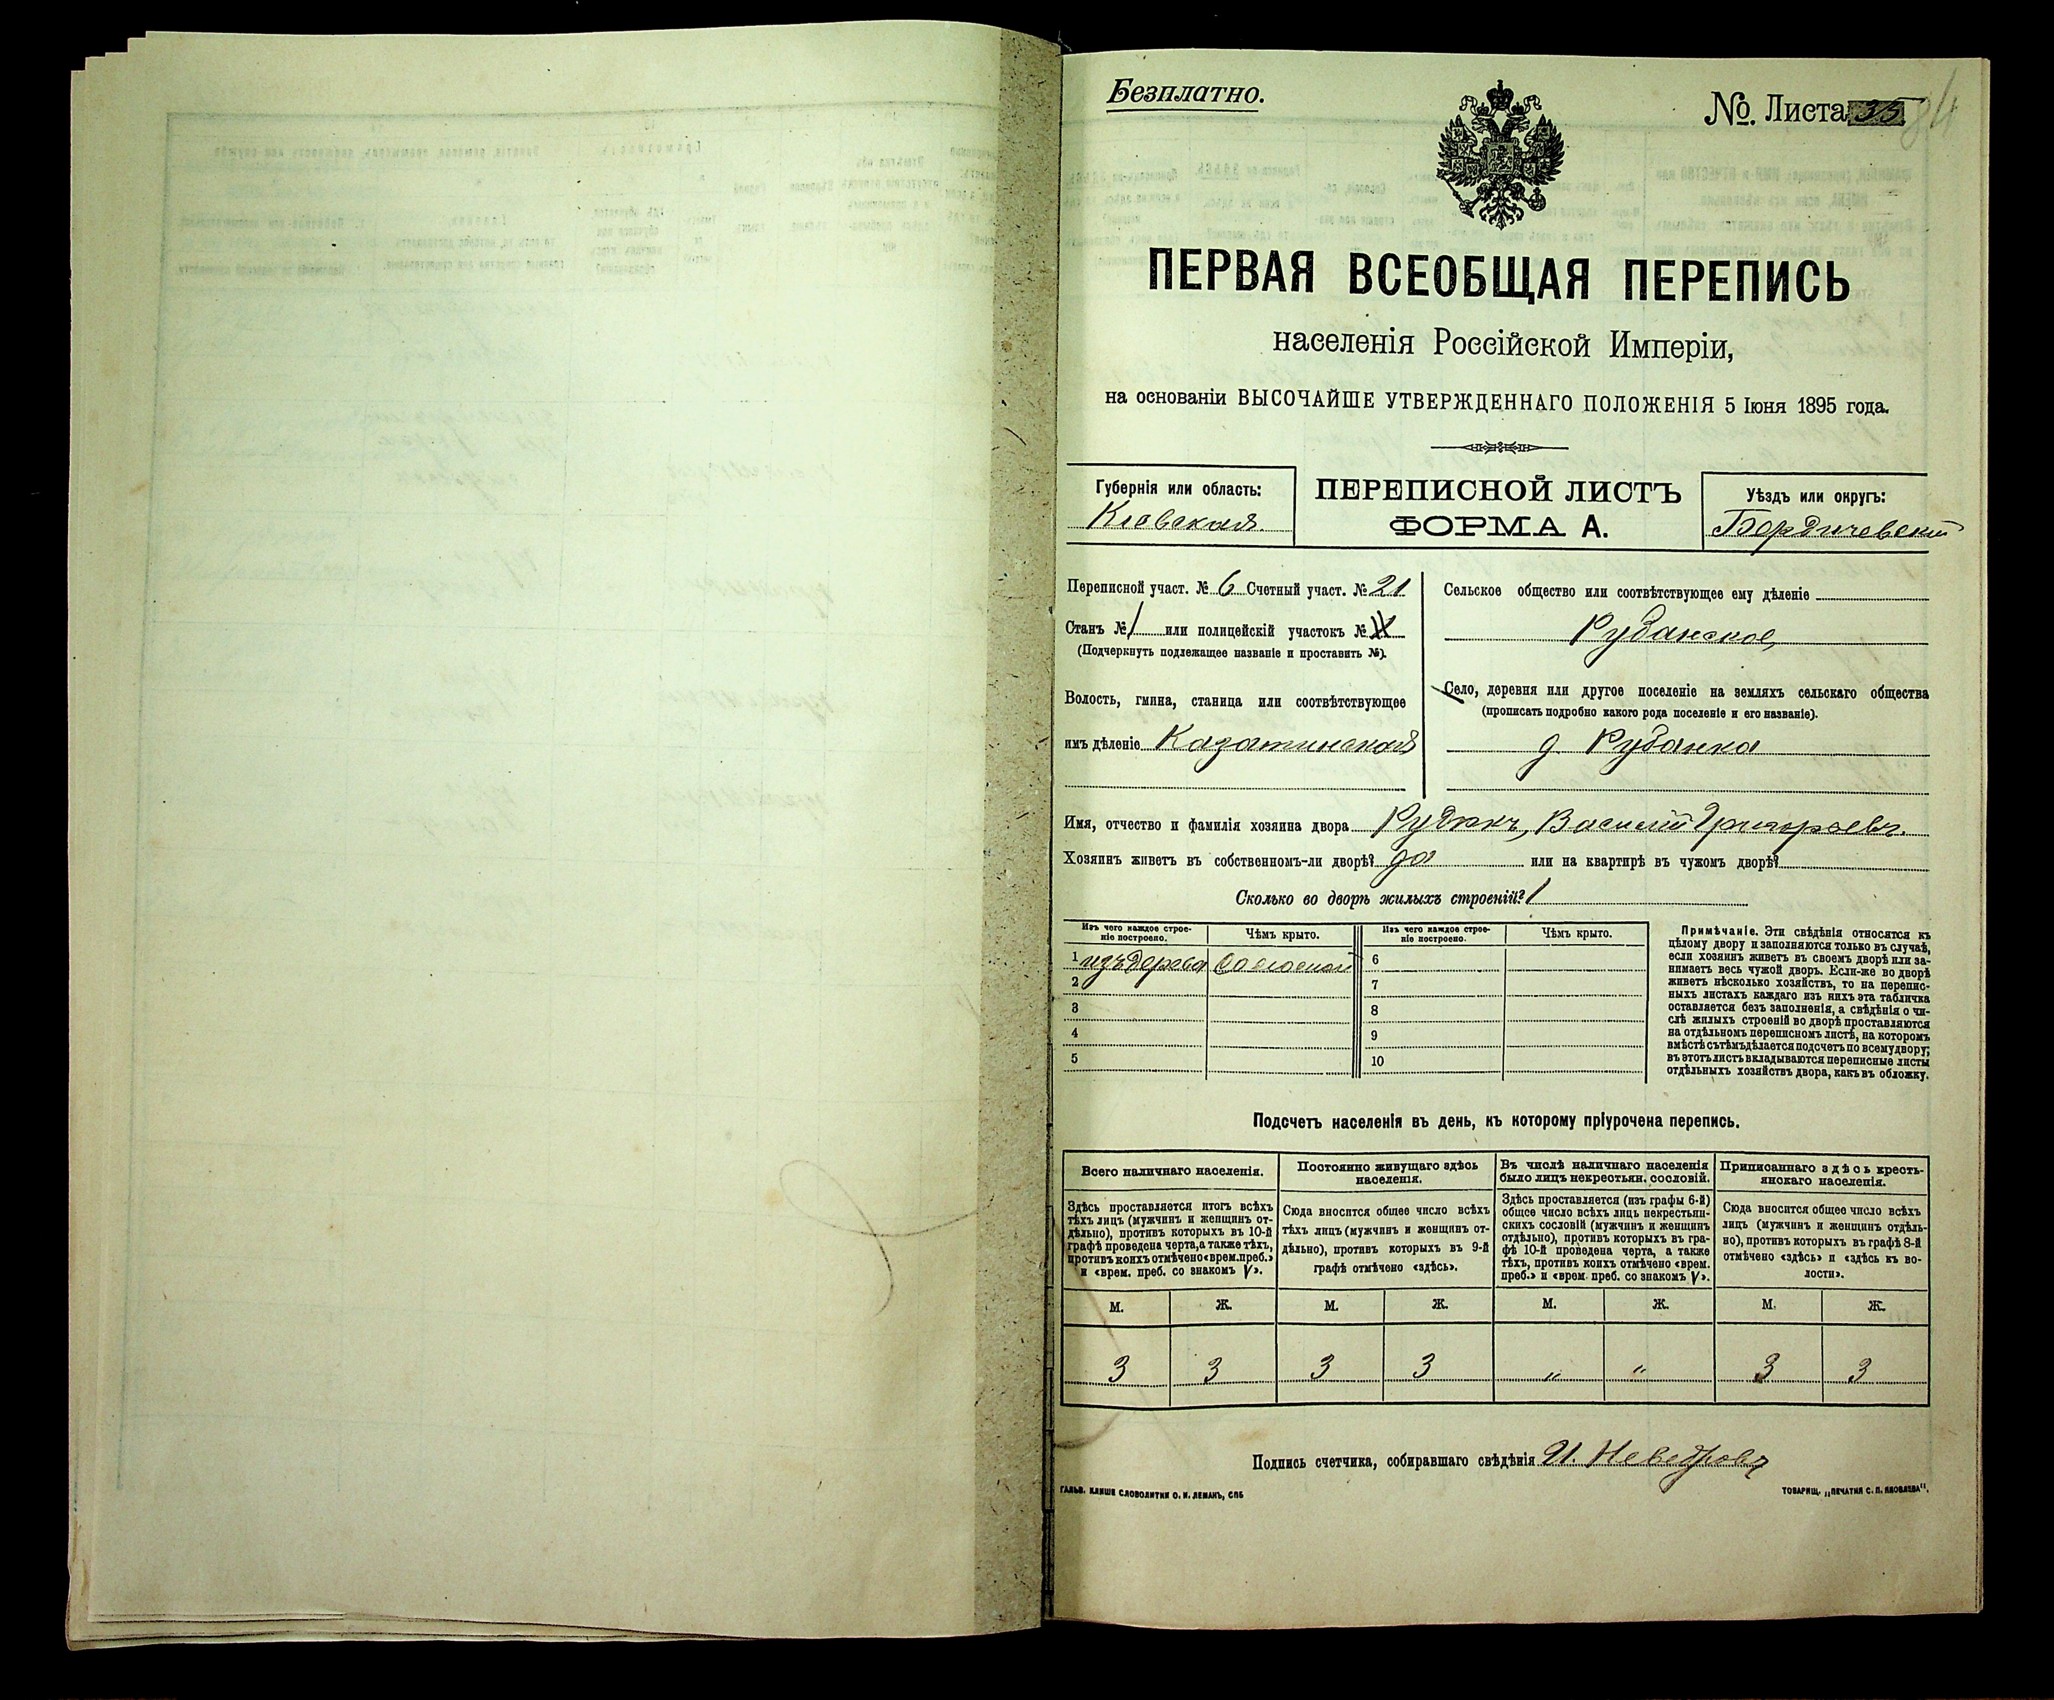 Безплатно.
№. Листа 35
84
ПЕРВАЯ ВСЕОБЩАЯ ПЕРЕПИСЬ
населенія Россійской Имперіи,
на основаніи ВЫСОЧАЙШЕ УТВЕРЖДЕННАГО ПОЛОЖЕНІЯ 5 Іюня 1895 года.
Губернія или область:
Кіевская.
ПЕРЕПИСНОЙ ЛИСТЪ
ФОРМА А.
Уѣздъ или округъ:
Бердичевскій
Переписной участ. № 6 Счетный участ. № 21
Станъ № 1 или полицейскій участокъ №
(Подчеркнуть подлежащее названіе и проставить №).
Волость, гмина, станица или соотвѣтствующее
имъ дѣленіе Казатинская
Сельское общество или соотвѣтствующее ему дѣленіе
Рубанское
Село, деревня или другое поселеніе на земляхъ сельскаго общества
(прописать подробно какого рода поселеніе и его названіе).
д. Рубанка
Имя, отчество и фамилія хозяина двора Василій Григорьевъ.
Хозяинъ живетъ въ собственномъ-ли дворѣ? да или на квартирѣ въ чужомъ дворѣ?
Сколько во дворѣ жилыхъ строеній? 1
Изъ чего каждое строе-
ніе построено.
Чѣмъ крыто.
Изъ чего каждое строе-
ніе построено.
Чѣмъ крыто.
1 изъ дерева Соломой 6
2 7
3 8
4 9
5 10
Примѣчаніе. Эти свѣдѣнія относятся къ
цѣлому двору и заполняются только въ случаѣ,
если хозяинъ живетъ въ своемъ дворѣ или за-
нимаетъ весь чужой дворъ. Если-же во дворѣ
живетъ нѣсколько хозяйствъ, то на перепис-
ныхъ листахъ каждаго изъ нихъ эта табличка
оставляется безъ заполненія, а свѣдѣнія о чи-
слѣ жилыхъ строеній во дворѣ проставляются
на отдѣльномъ переписномъ листѣ, на которомъ
вмѣстѣ съ тѣмъ дѣлается подсчетъ по всему двору;
въ этотъ листъ вкладываются переписные листы
отдѣльныхъ хозяйствъ двора, какъ въ обложку.
Подсчетъ населенія въ день, къ которому пріурочена перепись.
Всего наличнаго населенія.
Здѣсь проставляется итогъ всѣхъ
тѣхъ лицъ (мужчинъ и женщинъ от-
дѣльно), противъ которыхъ въ 10-й
графѣ проведена черта, а также тѣхъ,
противъ коихъ отмѣчено «врем. преб.»
и «врем. преб. со знакомъ V».
Постоянно живущаго здѣсь
населенія.
Сюда вносится общее число всѣхъ
тѣхъ лицъ (мужчинъ и женщинъ от-
дѣльно), противъ которыхъ въ 9-й
графѣ отмѣчено «здѣсь».
Въ числѣ наличнаго населенія
было лицъ некрестьян. сословій.
Здѣсь проставляется (изъ графы 6-й)
общее число всѣхъ лицъ некрестьян-
скихъ сословій (мужчинъ и женщинъ
отдѣльно), противъ которыхъ въ гра-
фѣ 10-й проведена черта, а также
тѣхъ, противъ коихъ отмѣчено «врем.
преб.» и «врем. преб. со знакомъ V».
Приписаннаго здѣсь кресть-
янскаго населенія.
Сюда вносится общее число всѣхъ
лицъ (мужчинъ и женщинъ отдѣль-
но), противъ которыхъ въ графѣ 8-й
отмѣчено «здѣсь» и «здѣсь въ во-
лости».
М. Ж. М. Ж. М. Ж. М. Ж.
3 3 3 3 „ „ 3 3
Подпись счетчика, собиравшаго свѣдѣнія И. Неведровъ
ГАЛЬВ. КЛИШЕ СЛОВОЛИТНИ О. И. ЛЕМАНЪ, СПБ
ТОВАРИЩ. „ПЕЧАТНЯ С. П. ЯКОВЛЕВА".